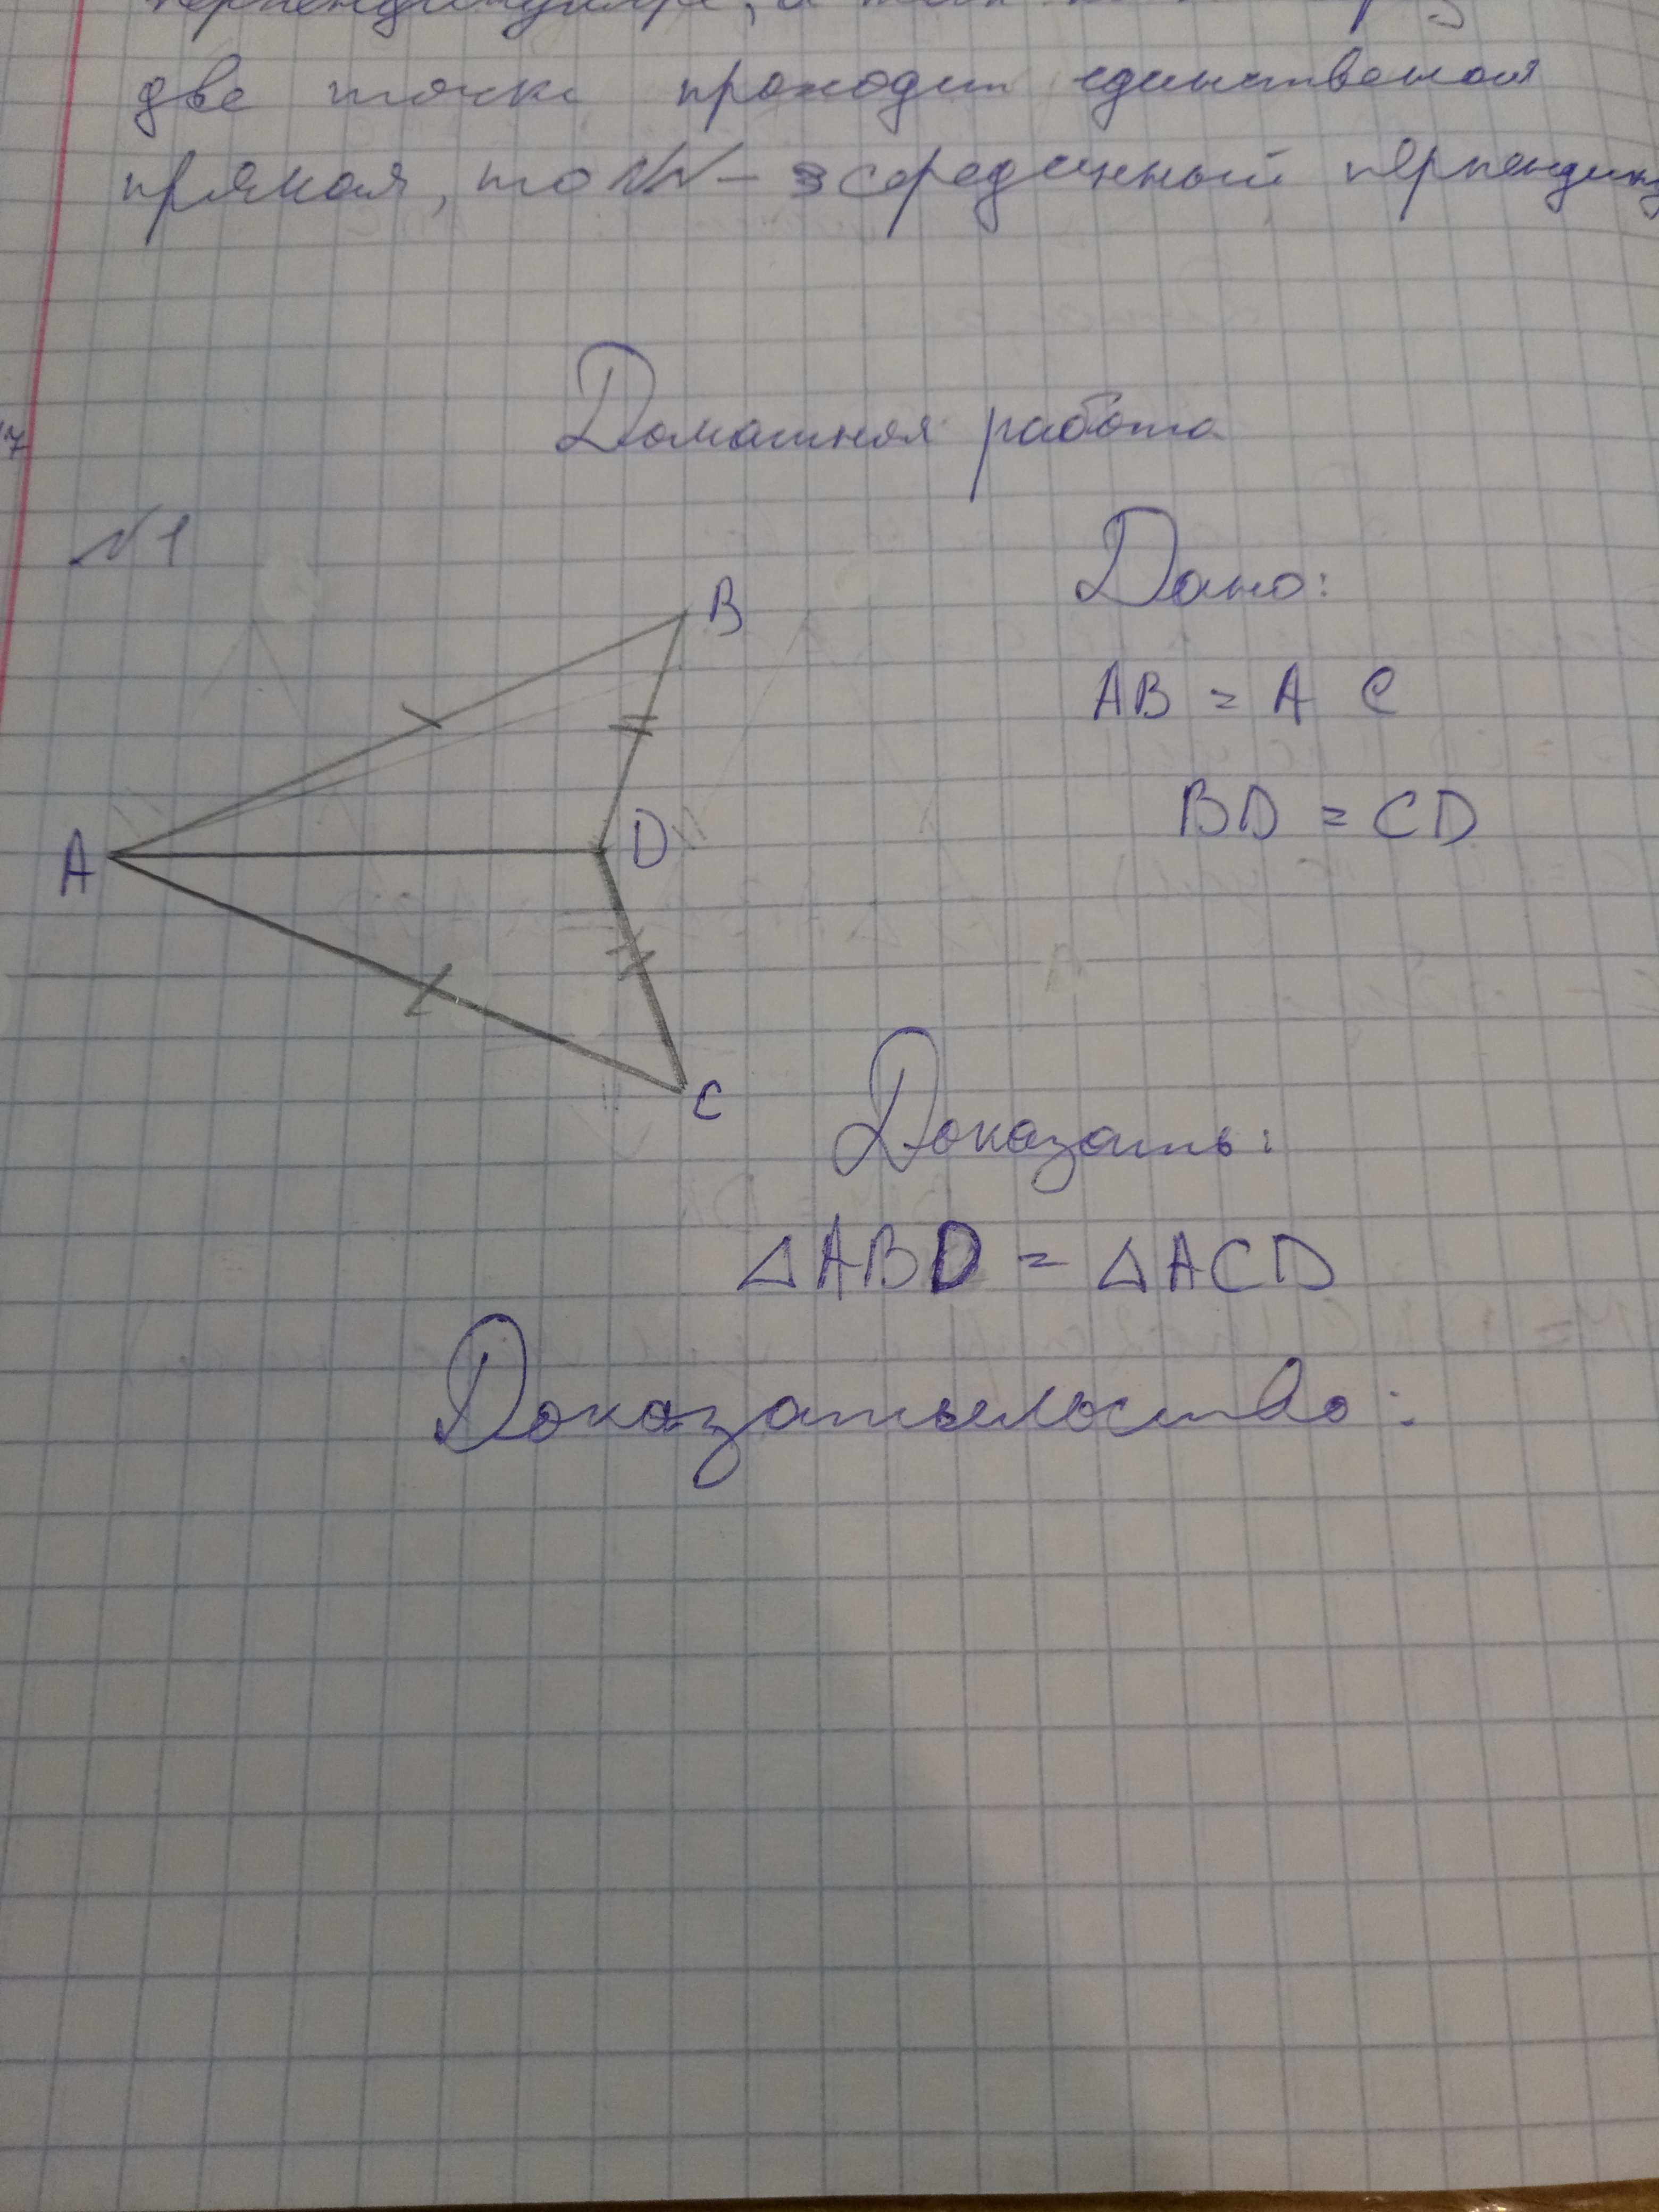 две точки проходит единственая
прямая, то NN - серединный перпендику
Домашняя работа
7
N1
B
Дано:
AB = A C
BD = CD
A
D
C
Доказать:
△ABD = △ACD
Доказательство: